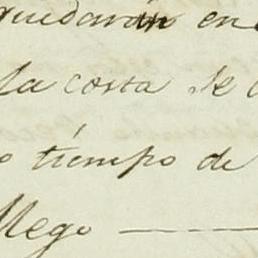 quedarán en
la costa de
tiempo de
llego